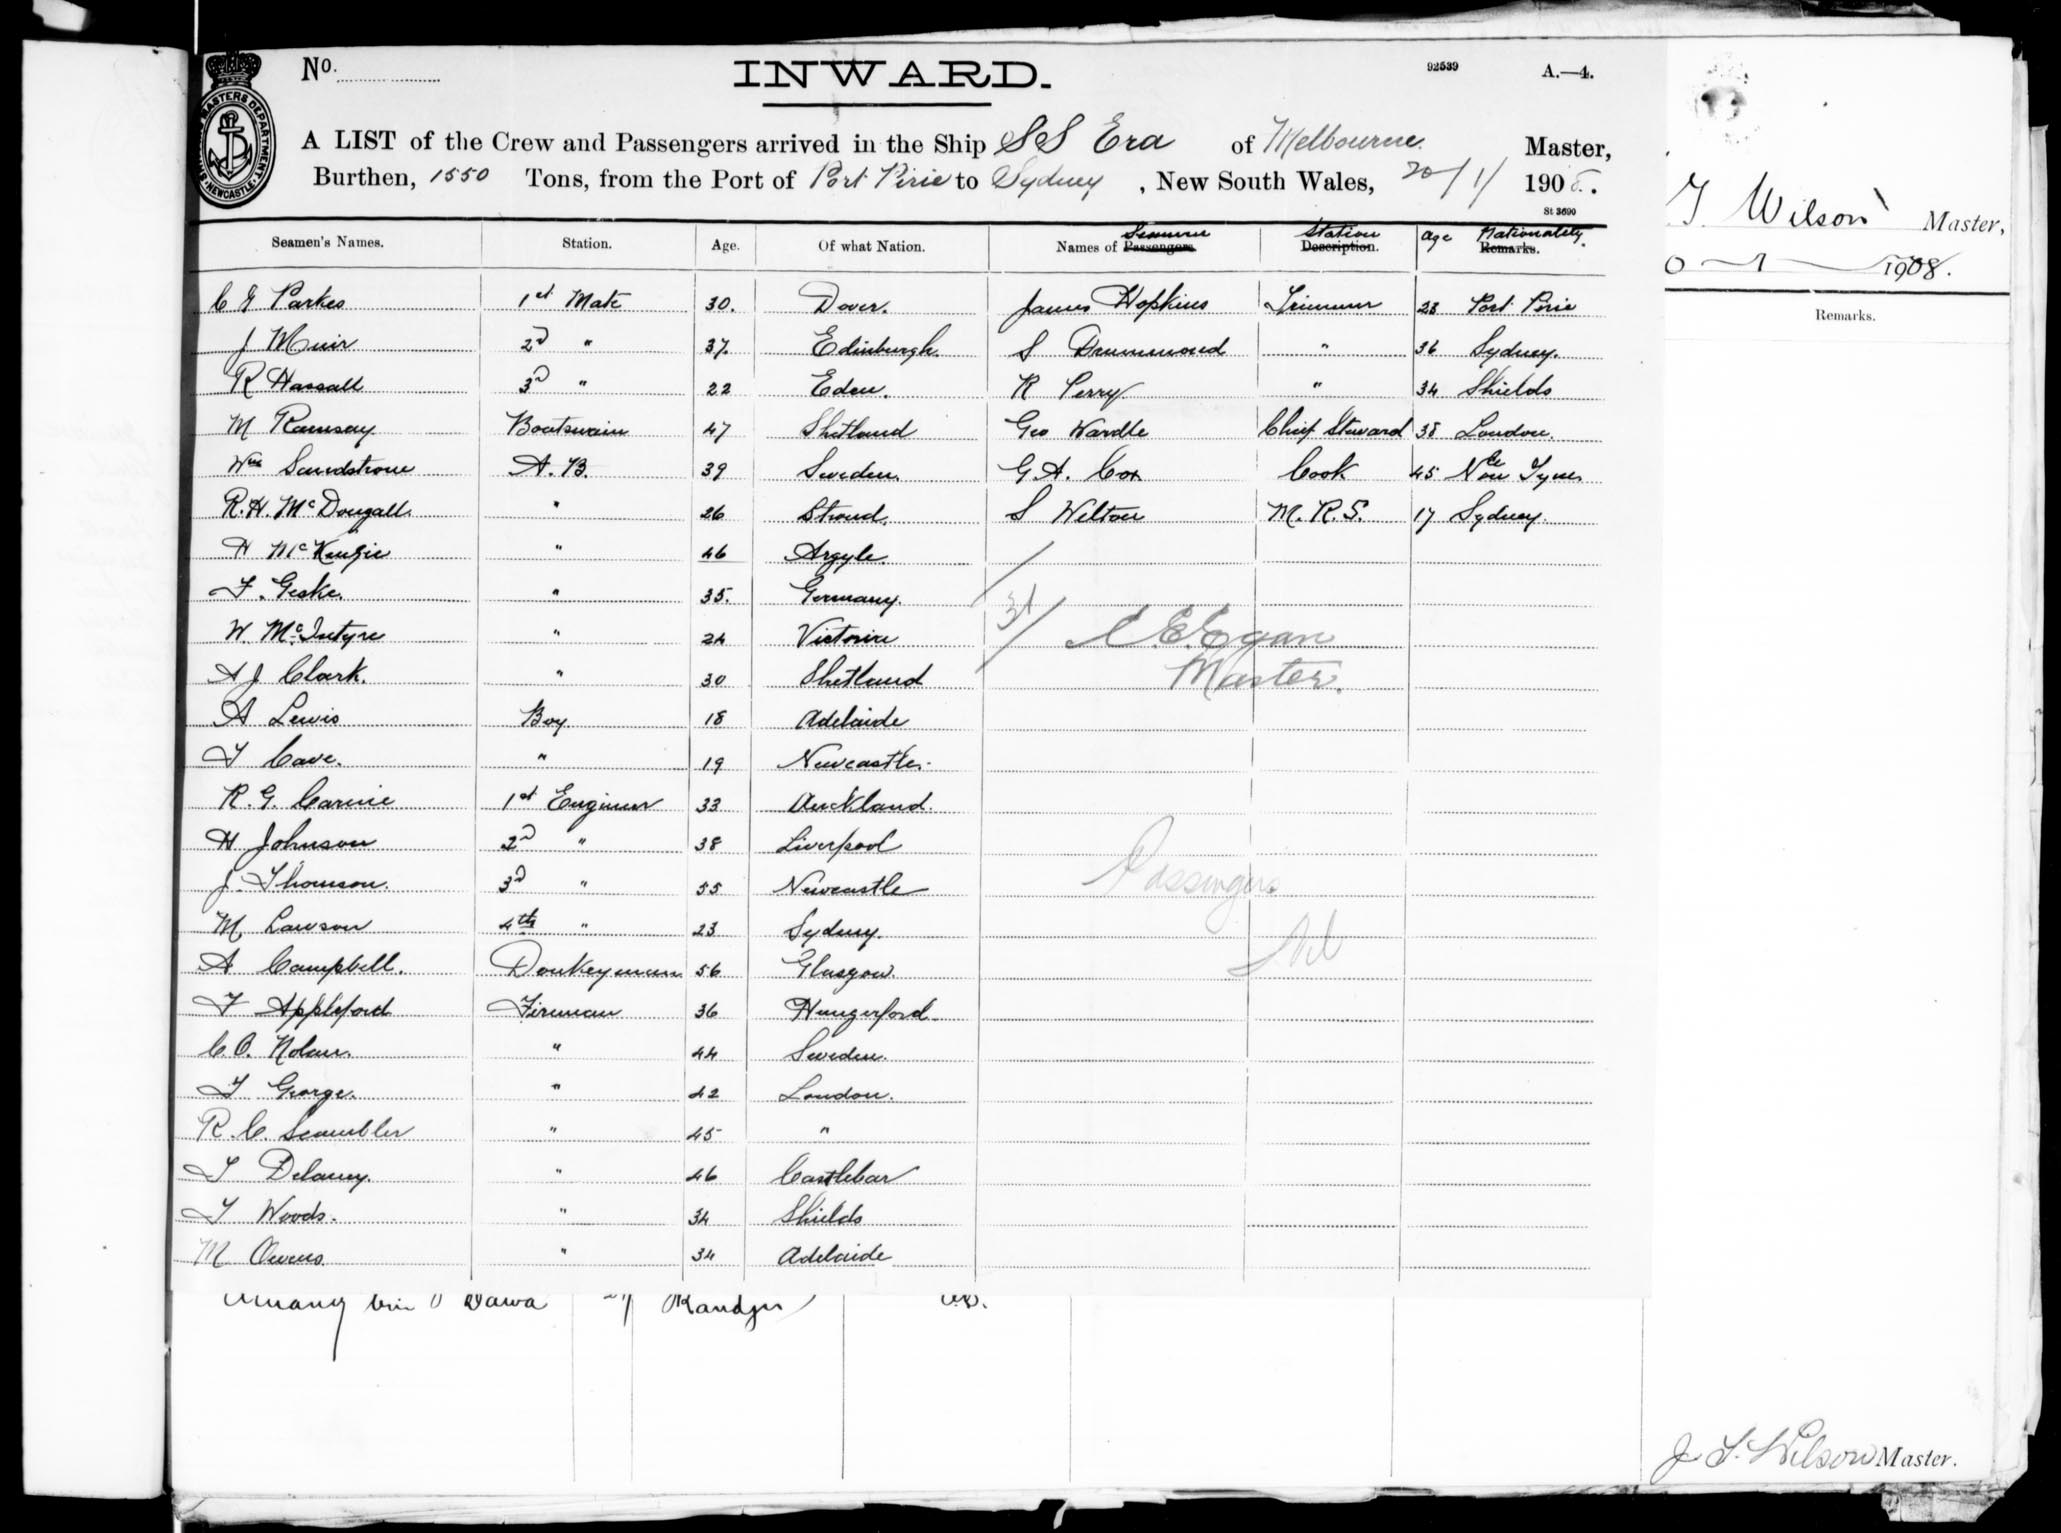 No.
INWARD.
92539
A.—4.
SHIPPING MASTERS DEPARTMENT
NEWCASTLE
A LIST of the Crew and Passengers arrived in the Ship SS Era of Melbourne Master,
Burthen, 1550 Tons, from the Port of Port Pirie to Sydney, New South Wales, 20/1/ 1908.
St 3690
Seamen's Names. Station. Age. Of what Nation. Names of Passengers Seamen Description. Station Age Remarks. Nationality
C E Parkes 1st Mate 30. Dover. James Hopkins Trimmer 23 Port Pirie
J Muir 2d " 37. Edinburgh. S Drummond " 36 Sydney.
R Hassall 3d " 22 Eden. R Perry " 34 Shields
M Ramsay Boatswain 47 Shetland Geo Wardle Chief Steward 38 London.
Wm Sandstrom A.B. 39 Sweden. G A. Cox Cook 45 N C on Tyne
R.H. McDougall " 26 Stroud. S Wilton M.R.S. 17 Sydney.
H McKenzie " 46 Argyle.
F. Geske. " 35. Germany.
W. McIntyre " 24 Victoria
31
E. Egan
A J Clark. " 30 Shetland
Master.
A Lewis Boy 18 Adelaide
T Cave. " 19 Newcastle.
R. G. Carnie 1st Engineer 33 Auckland.
H Johnson 2d " 38 Liverpool
J. Thomson. 3d " 55 Newcastle
Passengers
M Lawson 4th " 23 Sydney.
Nil
A Campbell. Donkeyman 56 Glasgow.
F Appleford Fireman 36 Hungerford.
C.O. Nolan. " 44 Sweden.
T George. " 42 London.
R. C. Scambler " 45 "
T Delaney. " 46 Castlebar
T Woods. " 34 Shields
M Owens. " 34 Adelaide
bin Dawa
A.B.
T Wilson Master,
1908.
Remarks.
J T. Wilson Master.